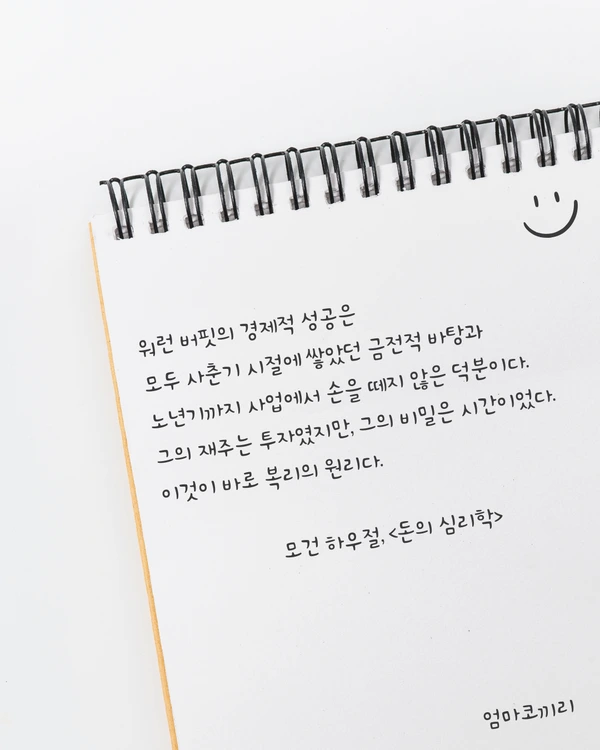 워런 버핏의 경제적 성공은
모두 사춘기 시절에 쌓았던 금전적 바탕과
노년기까지 사업에서 손을 떼지 않은 덕분이다.
그의 재주는 투자였지만, 그의 비밀은 시간이었다.
이것이 바로 복리의 원리다.
모건 하우절, <돈의 심리학>
엄마코끼리